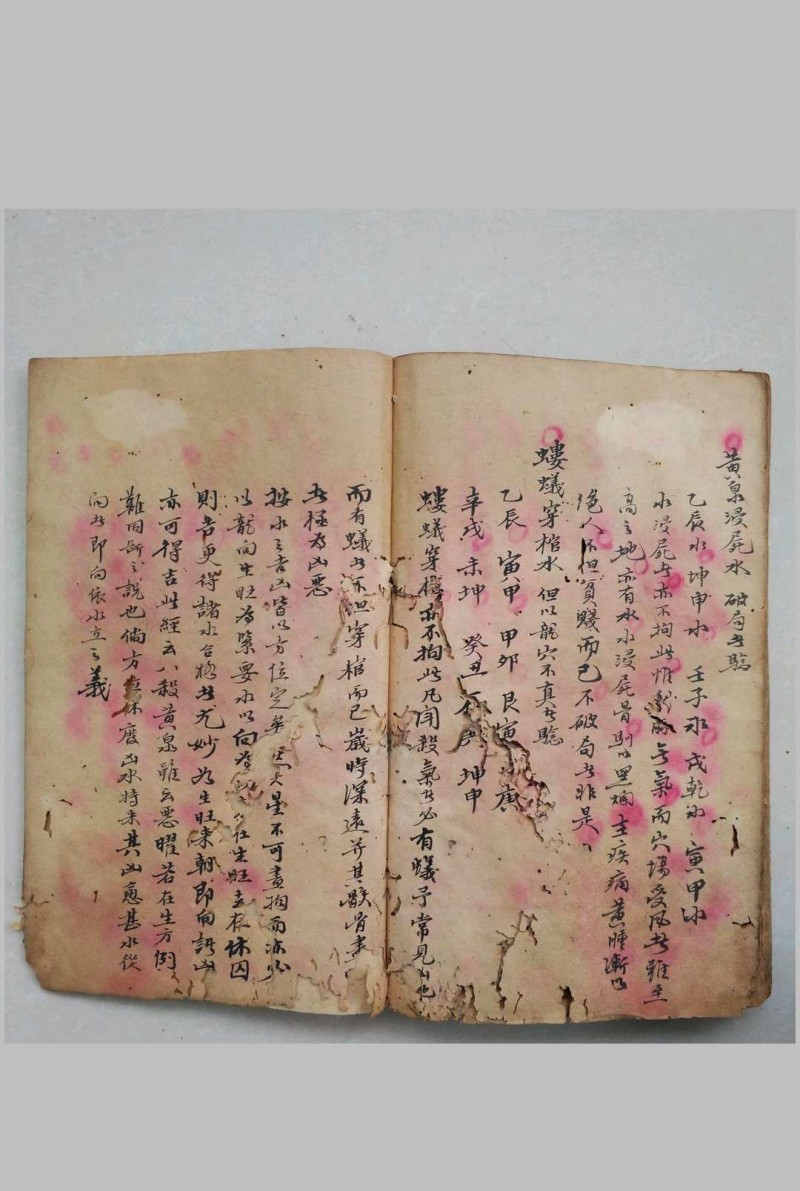 黃泉浸屍水 破局者驗
乙辰水 坤申水 壬子水 戌乾水 寅甲水
水浸屍者亦不拘此惟龍脉無氣而穴場受風者雖至
高之地亦有水水浸屍骨則以黑爛主疾病黃腫漸以
絕人不但貧賤而已不破局者非是
螻蟻穿棺水 但以龍穴不真者驗
乙辰 寅甲 甲卯 艮寅 庚
辛戌 未坤 癸丑 坤申
螻蟻穿棺亦不拘此凡闭殺氣者必有蟻予常見
而有蟻者不但穿棺而已歲時深遠并其骸骨盡
者極為凶惡
按水之吉凶皆以方位定矣 天星不可盡拘而亦必
以龍向生旺為緊要水以向為 在生旺 休囚
則吉更得諸水合格者尤妙為生旺来朝即向諸凶
亦可得吉此經云八殺黃泉雖云惡曜若在生方例
難同斷之說也倘方 休廢凶水特来其凶愈甚水從
向者即向依水立之義